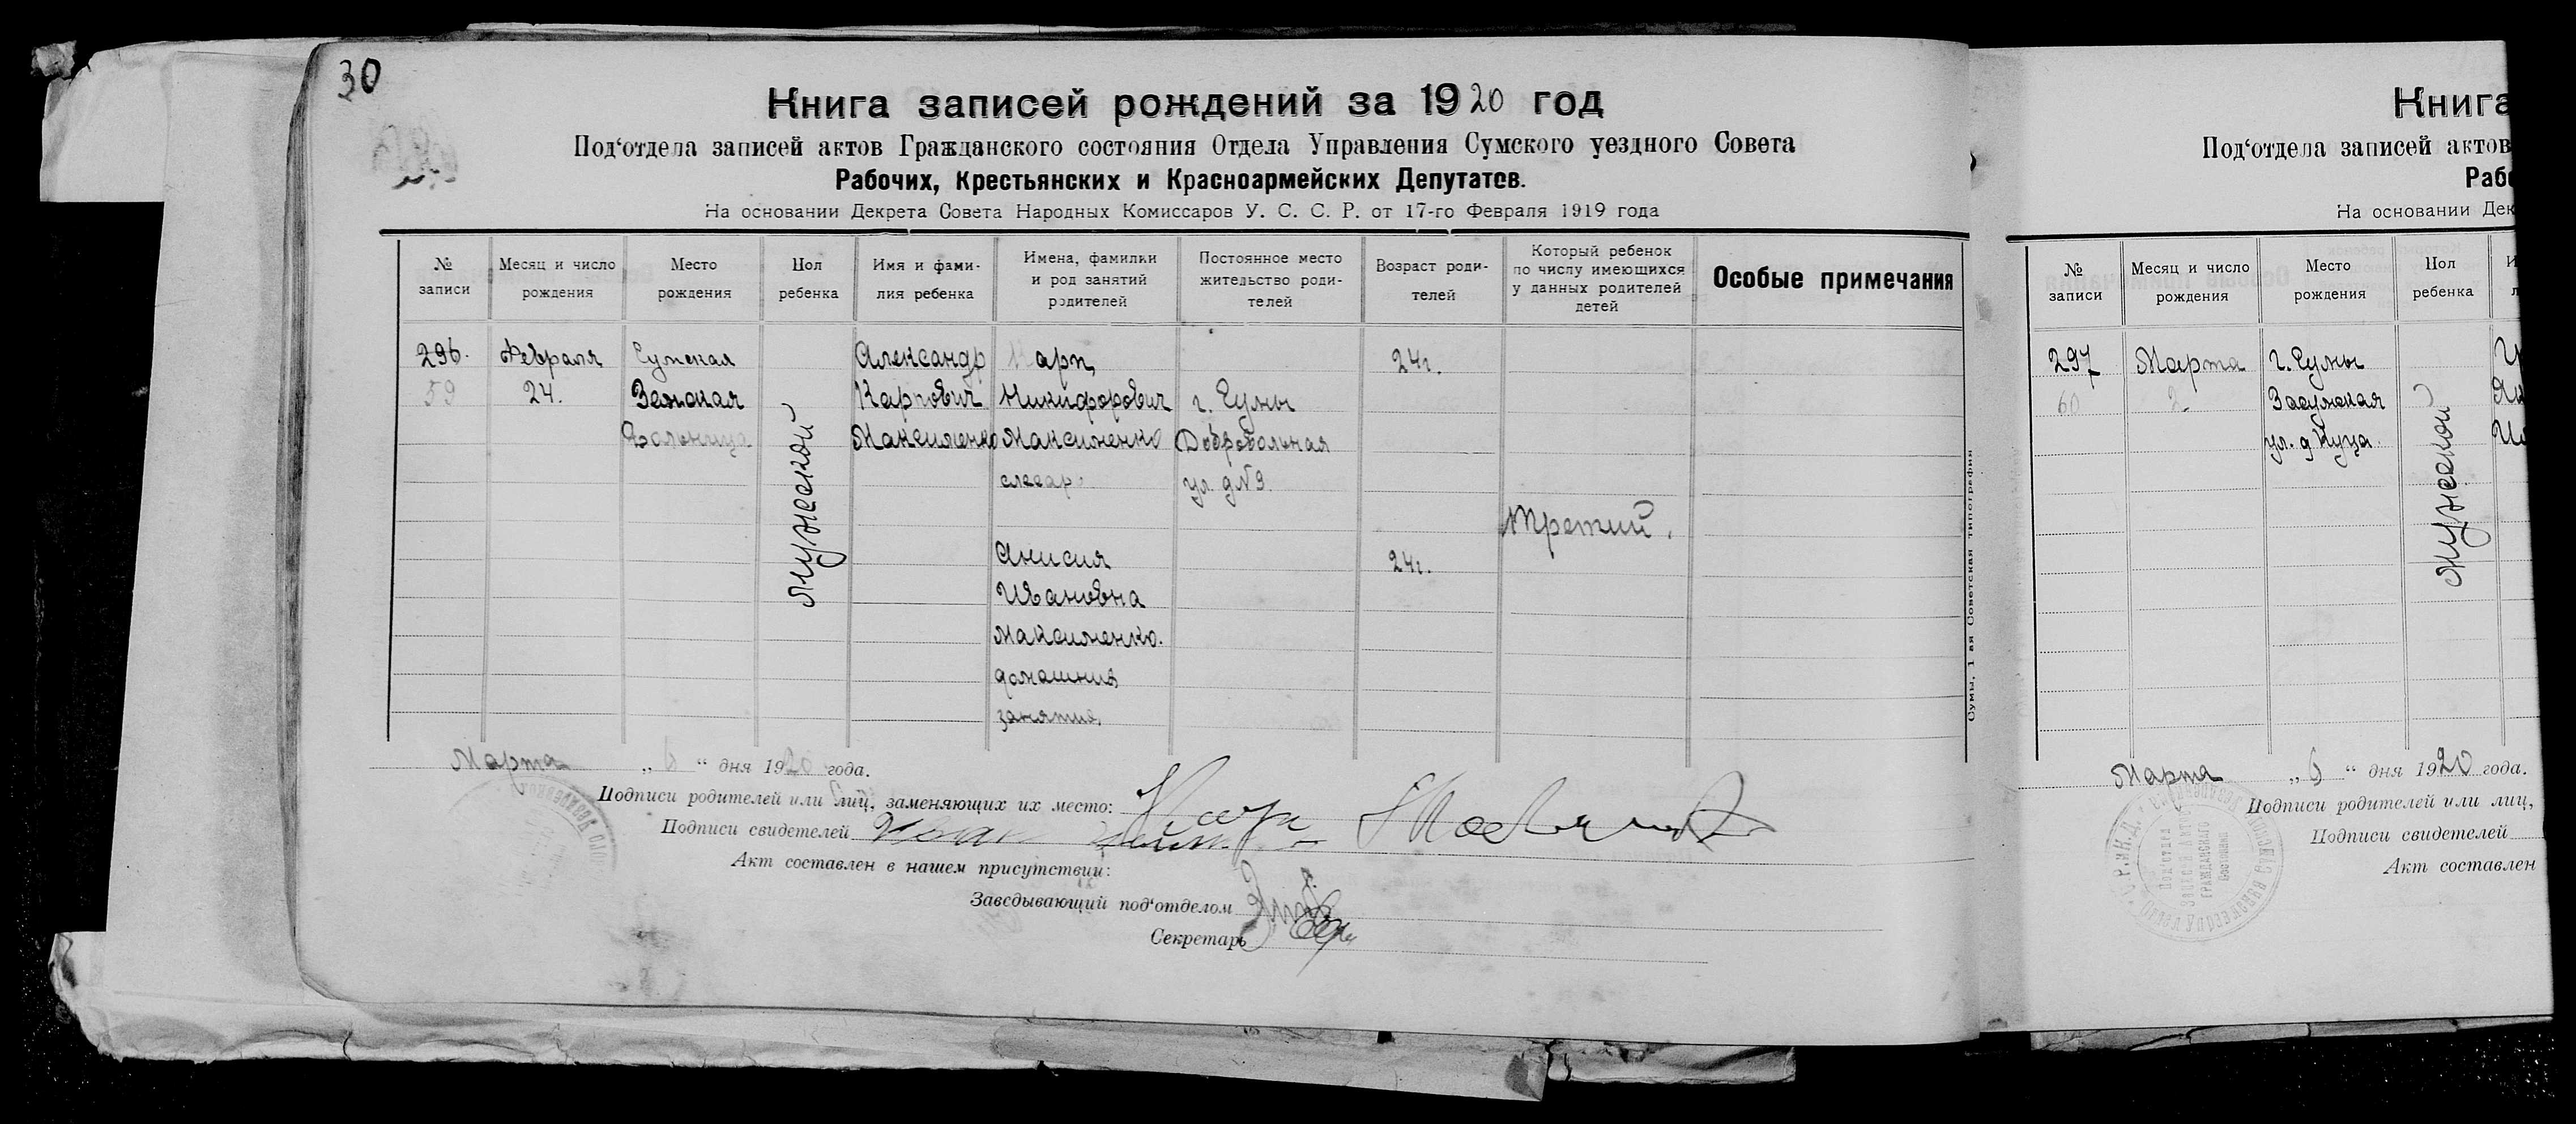 30
Книга записей рождений за 1920 год
Под‘отдела записей актов Гражданского состояния Отдела Управления Сумского уездного Совета
Рабочих, Крестьянских и Красноармейских Депутатов.
На основании Декрета Совета Народных Комиссаров У. С. С. Р. от 17-го Февраля 1919 года
№ записи
Месяц и число рождения
Место рождения
Пол ребенка
Имя и фами-
лия ребенка
Имена, фамилии
и род занятий
родителей
Постоянное место
жительство роди-
телей
Возраст роди-
телей
Который ребенок
по числу имеющихся
у данных родителей
детей
Особые примечания
296.
59
Февраля
24.
Сумская
Земская
Больница
мужеской
Александр
Карпович
Максименко
Карп
Никифорович
Максименко
слесарь
Анисия
Ивановна
Максименко.
домашния
занятие.
г. Сумы
Добровольная
ул. д №9.
24г.
24г.
третий.
Сумы, 1 ая Советская типография
Марта „6“ дня 1920 года.
Подписи родителей или лиц, заменяющих их место:
Подписи свидетелей
Акт составлен в нашем присутствии:
Заведывающий под‘отделом
Секретарь
Книга
Под‘отдела записей актов
Рабо
На основании Дек
№ записи
Месяц и число рождения
Место рождения
Пол ребенка
297
60
Марта
2
г. Сумы
Засумская
ул. д Куца
мужеской
Марта „6“ дня 1920 года.
Подписи родителей или лиц,
Подписи свидетелей
Акт составлен